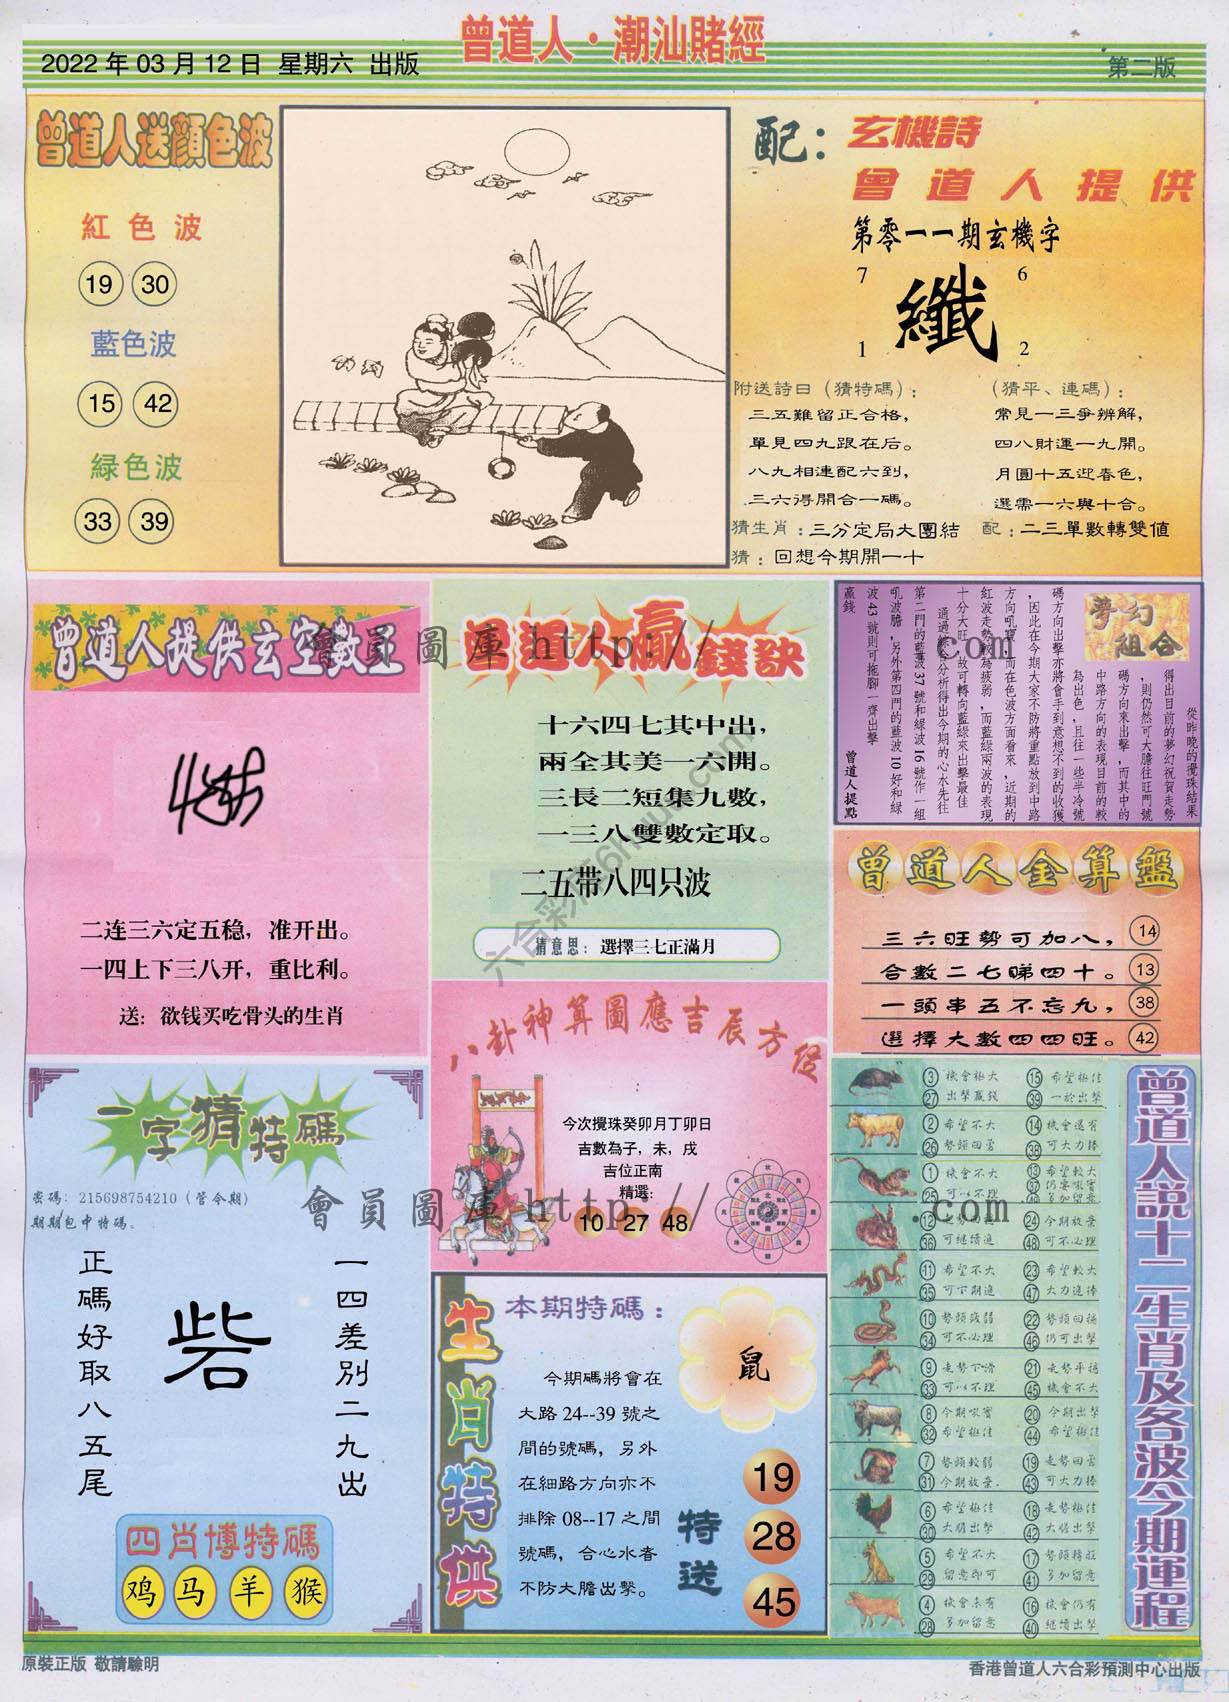 曾道人·潮汕賭經
2022 年 03 月 12 日 星期六 出版
第二版
曾道人送顏色波
紅色波
19 30
藍色波
15 42
緑色波
33 39
配：玄機詩
曾道人提供
第零一一期玄機字
7 6
纖
1 2
附送詩曰（猜特碼）：
三五難留正合格，
單見四九跟在后。
八九相連配六到，
三六得開合一碼。
（猜平、連碼）：
常見一三爭辨解，
四八財運一九開。
月圓十五迎春色，
選需一六與十合。
猜生肖：三分定局大團結 配：二三單數轉雙值
猜：回想今期開一十
曾道人提供玄空數王
二连三六定五稳，准开出。
一四上下三八开，重比利。
送：欲钱买吃骨头的生肖
曾道人贏錢訣
十六四七其中出，
兩全其美一六開。
三長二短集九數，
一三八雙數定取。
二五带八四只波
猜意思：選擇三七正滿月
夢幻組合
從昨晚的攪珠結果
得出目前的夢幻祝賀走勢
，則仍然可大膽往旺門號
碼方向來出擊，而其中的
中路方向的表現目前的較
為出色，且往一些半冷號
碼方向出擊亦將會手到意想不到的收獲
，因此在今期大家不防將重點放到中路
方向吼寶，而在色波方面看來，近期的
紅波走勢較為疲弱，而藍綠兩波的表現
十分大旺，故可轉向藍綠來出擊最佳
通過綜合分析得出今期的心水先往
第二門的藍波 37 號和綠波 16 號作一組
吼波膽，另外第四門的藍波 10 好和綠
波 43 號則可拖腳一齊出擊
贏錢
曾道人提點
曾道人金算盤
三六旺勢可加八， 14
合數二七睇四十。 13
一頭串五不忘九， 38
選擇大數四四旺。 42
八卦神算圖應吉辰方位
今次攪珠癸卯月丁卯日
吉數為子，未，戌
吉位正南
精選：
10 27 48
一字猜特碼
密碼：215698754210（管今期）
期期包中特碼。
一四差別二九出
砦
正碼好取八五尾
四肖博特碼
鸡 马 羊 猴
生肖特供
本期特碼：
鼠
今期碼將會在
大路 24--39 號之
間的號碼，另外
在細路方向亦不
排除 08--17 之間
號碼，合心水者
不防大膽出擊。
特送
19
28
45
曾道人說十二生肖及各波今期運程
3 機會極大 15 希望極佳
27 出擊贏錢 39 一於出擊
2 希望不大 14 機會還有
26 勢頭回勇 38 可大力捧
1 機會不大 13 希望較大
25 可以不理 37 仍要吼實
多加留意
12 走勢回穩 24 今期放棄
36 可繼續追 48 可不必理
11 希望不大 23 希望較大
35 可下期追 47 大力追捧
10 勢頭疲弱 22 勢頭回穩
34 可不必理 46 仍可出擊
9 走勢下滑 21 走勢平穩
33 可以不理 45 機會不大
8 今期吼實 20 今期出擊
32 希望極佳 44 希望極佳
7 勢頭較弱 19 走勢回勇
31 今期放棄. 43 可大力捧
6 希望極佳 18 走勢極佳
30 大膽出擊 42 大膽出擊
5 希望不大 17 勢頭轉旺
29 留意即可 41 多加留意
4 機會未有 16 機會仍有
28 多加留意 40 繼續出擊
會員圖庫 http:// .com
會員圖庫 http:// .com
原裝正版 敬請驗明
香港曾道人六合彩預測中心出版